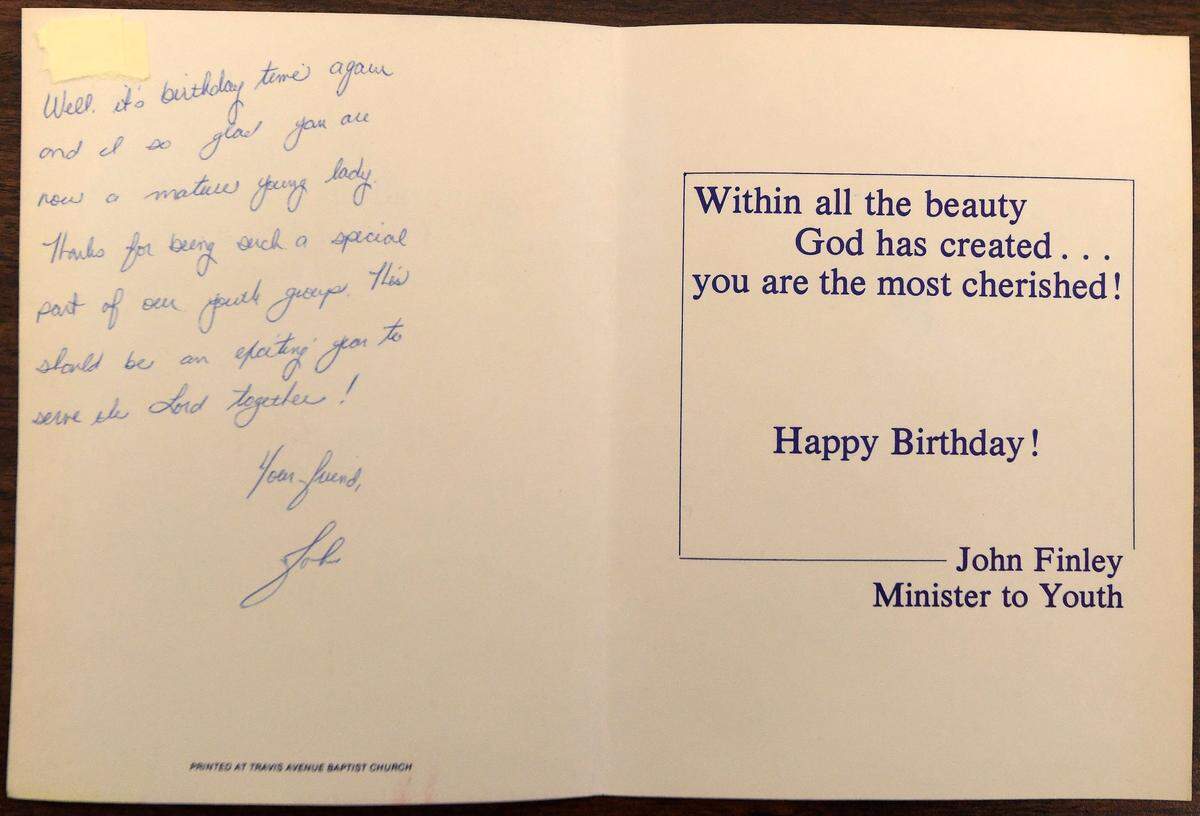 Well. it's birthday time again
and I so glad you are
now a mature young lady.
Thanks for being such a special
part of our youth group. This
should be an exciting year to
serve the Lord together!
Your friend,
John
PRINTED AT TRAVIS AVENUE BAPTIST CHURCH
Within all the beauty
God has created . . .
you are the most cherished!
Happy Birthday!
John Finley
Minister to Youth